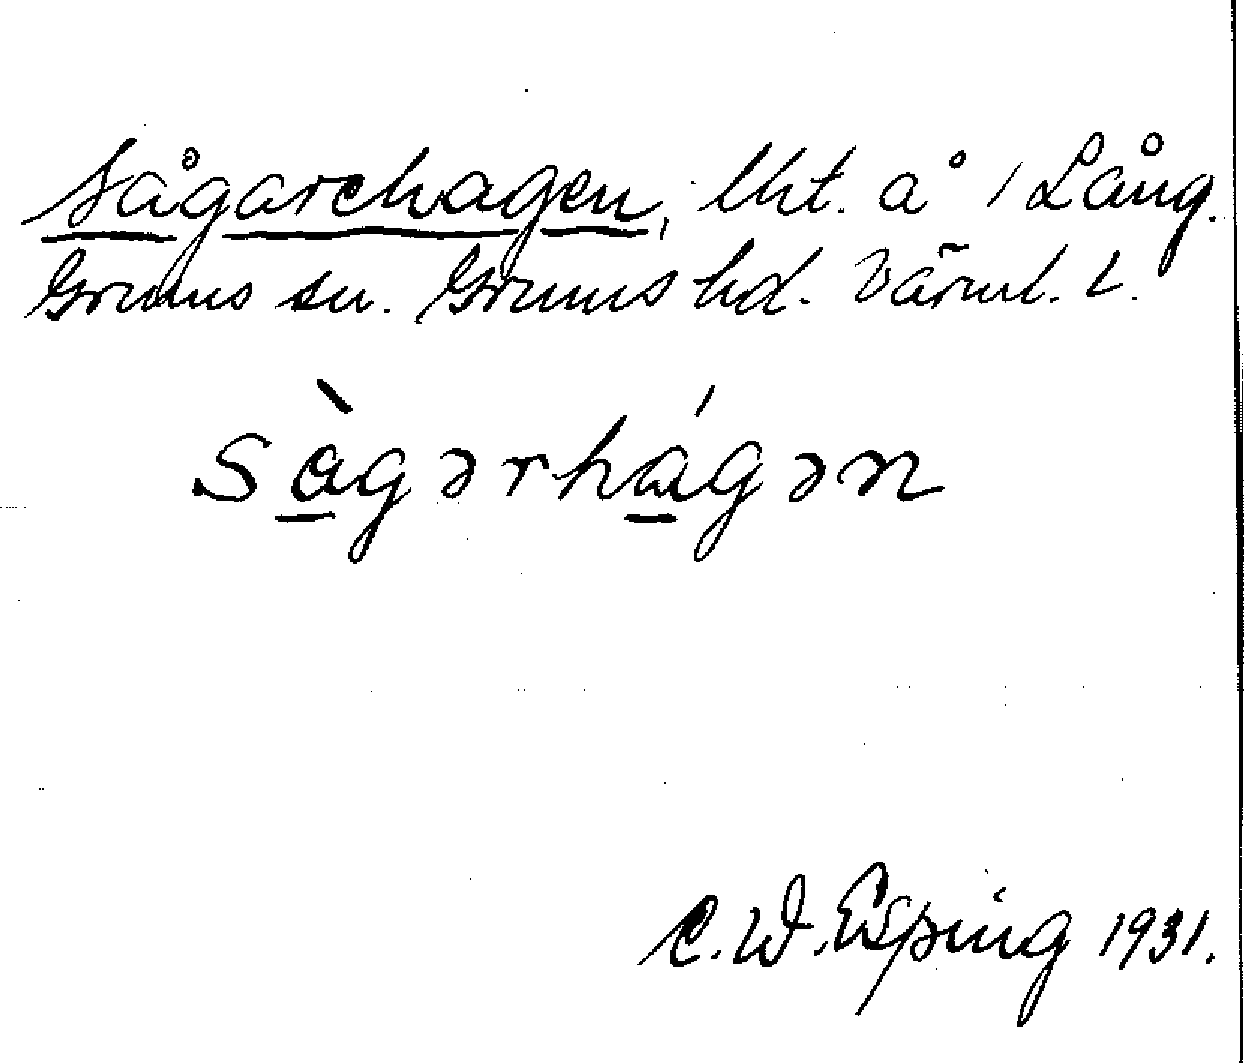 Sågarehagen, lht. å 1 Lång.
Grums sn. Grums hd. Värml. L.
sàgərhágən
C. W. Esping 1931.